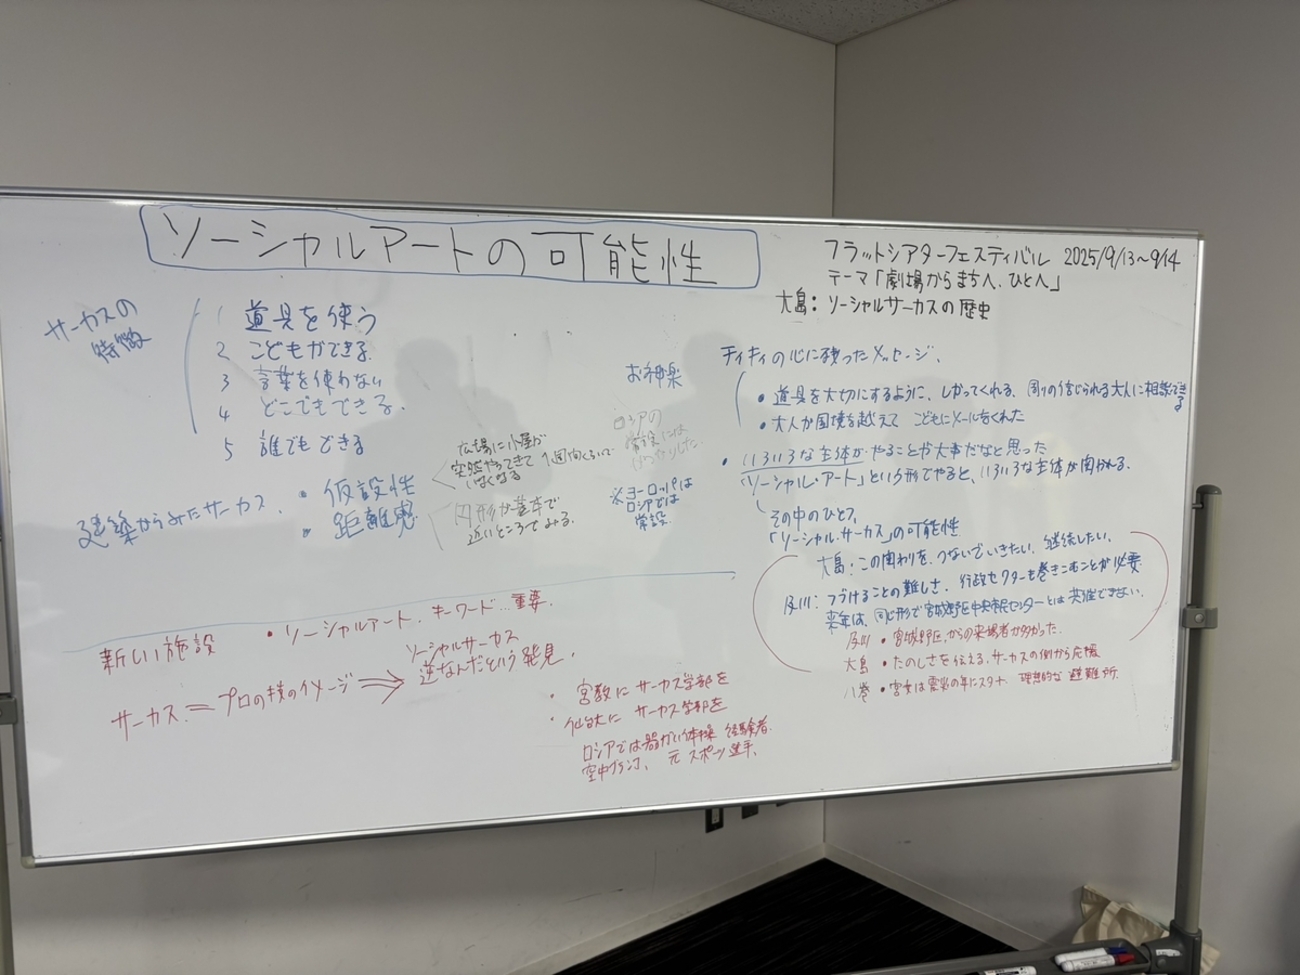 ソーシャルアートの可能性
フラットシアターフェスティバル 2025/9/13〜9/14
テーマ「劇場からまちへ、ひとへ」
大島：ソーシャルサーカスの歴史
サーカスの
特徴
1 道具を使う
2 こどもができる。
3 言葉を使わない
4 どこでもできる。
5 誰でもできる
建築からみたサーカス、
・仮設性
・距離感
広場に小屋が
突然やってきて 1週間くらいで
いなくなる
円形が基本で
近いところでみる。
お神楽
ロシアの
常設には
※ヨーロッパは
ロシアでは
常設
チィキィの心に残ったメッセージ、
・道具を大切にするように、しかってくれる、周りの信じられる大人に相談できる
・大人が国境を越えて こどもにメールをくれた
・いろいろな主体がやることが大事だなと思った
「ソーシャル・アート」という形でやると、いろいろな主体が関われる。
その中のひとつ、
「ソーシャル・サーカス」の可能性
大島：この関わりを、つないでいきたい、継続したい。
及川：つづけることの難しさ、行政セクターも巻きこむことが必要
来年は、同じ形で宮城野区中央市民センターとは共催できない。
及川・宮城野区からの来場者が多かった。
大島・たのしさを伝える。サーカスの側から応援
八巻・宮女は震災の年にスタート 理想的な避難所。
新しい施設
・ソーシャルアート、キーワード…重要。
サーカス ＝ プロの技のイメージ ⇒ ソーシャルサーカス
逆なんだという発見。
・宮教にサーカス学部を
・仙台大にサーカス学部を
ロシアでは器かい体操 経験者
空中ブランコ、元スポーツ選手、